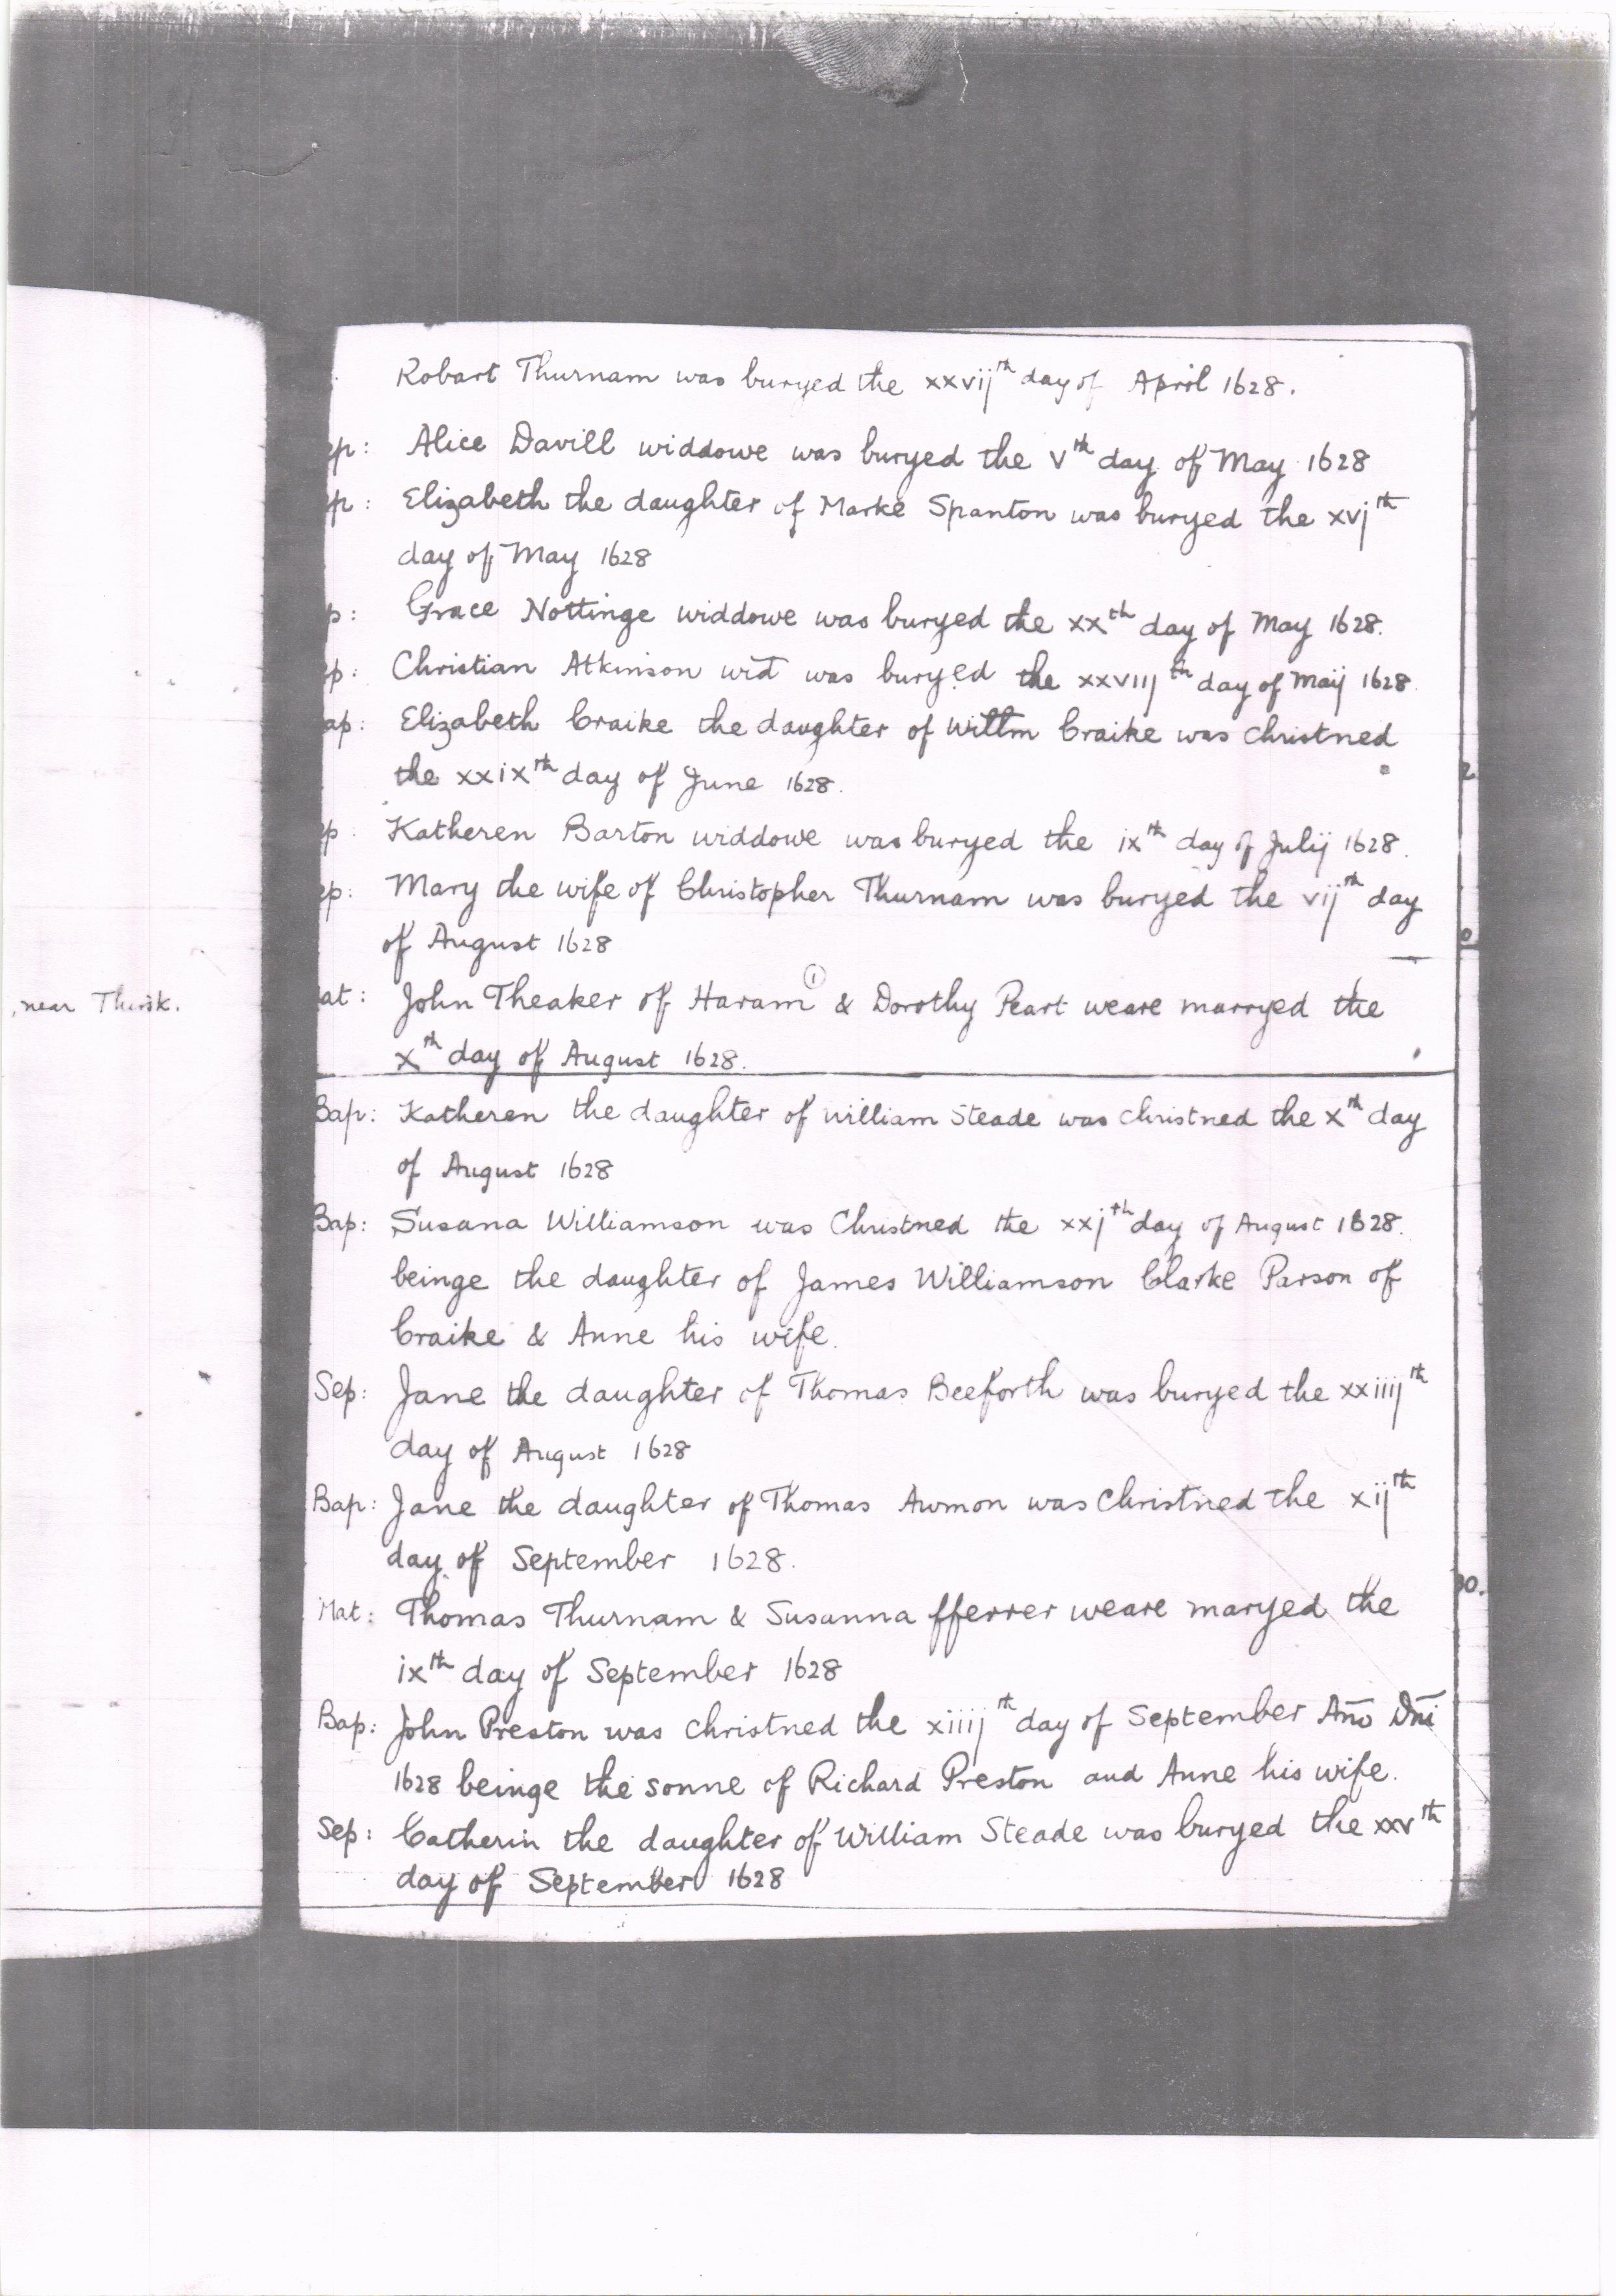 Robart Thurnam was buryed the xxvijth day of April 1628.
ep: Alice Davill widdowe was buryed the vth day of May 1628
ep: Elizabeth the daughter of Marke Spanton was buryed the xvjth
day of May 1628
p: Grace Nottinge widdowe was buryed the xxth day of May 1628.
ep: Christian Atkinson wid was buryed the xxviijth day of Maij 1628.
ap: Elizabeth Craike the daughter of Willm Craike was christned
the xxixth day of June 1628.
ep: Katheren Barton widdowe was buryed the ixth day of Julij 1628.
ep: Mary the wife of Christopher Thurnam was buryed the vijth day
of August 1628
, near Thirsk.
at: John Theaker of Haram ① & Dorothy Peart weare marryed the
xth day of August 1628.
Bap: Katheren the daughter of William Steade was christned the xth day
of August 1628
Bap: Susana Williamson was Christned the xxjth day of August 1628.
beinge the daughter of James Williamson Clarke Parson of
Craike & Anne his wife.
Sep: Jane the daughter of Thomas Beeforth was buryed the xxiiijth
day of August 1628
Bap: Jane the daughter of Thomas Awmon was Christned the xijth
day of September 1628.
Mat: Thomas Thurnam & Susanna fferrer weare maryed the
ixth day of September 1628
Bap: John Preston was christned the xiiijth day of September Ano Dni
1628 beinge the sonne of Richard Preston and Anne his wife.
Sep: Catherin the daughter of William Steade was buryed the xxvth
day of September 1628